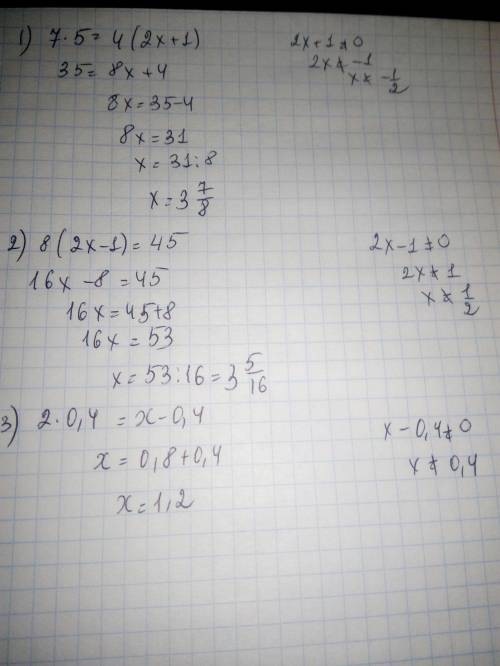 1) 7·5=4(2x+1) 2x+1≠0
35=8x+4 2x≠-1
8x=35-4 x≠-1/2
8x=31
x=31:8
x=3 7/8
2) 8(2x-1)=45 2x-1≠0
16x-8=45 2x≠1
16x=45+8 x≠1/2
16x=53
x=53:16=3 5/16
3) 2·0,4=x-0,4 x-0,4≠0
x=0,8+0,4 x≠0,4
x=1,2